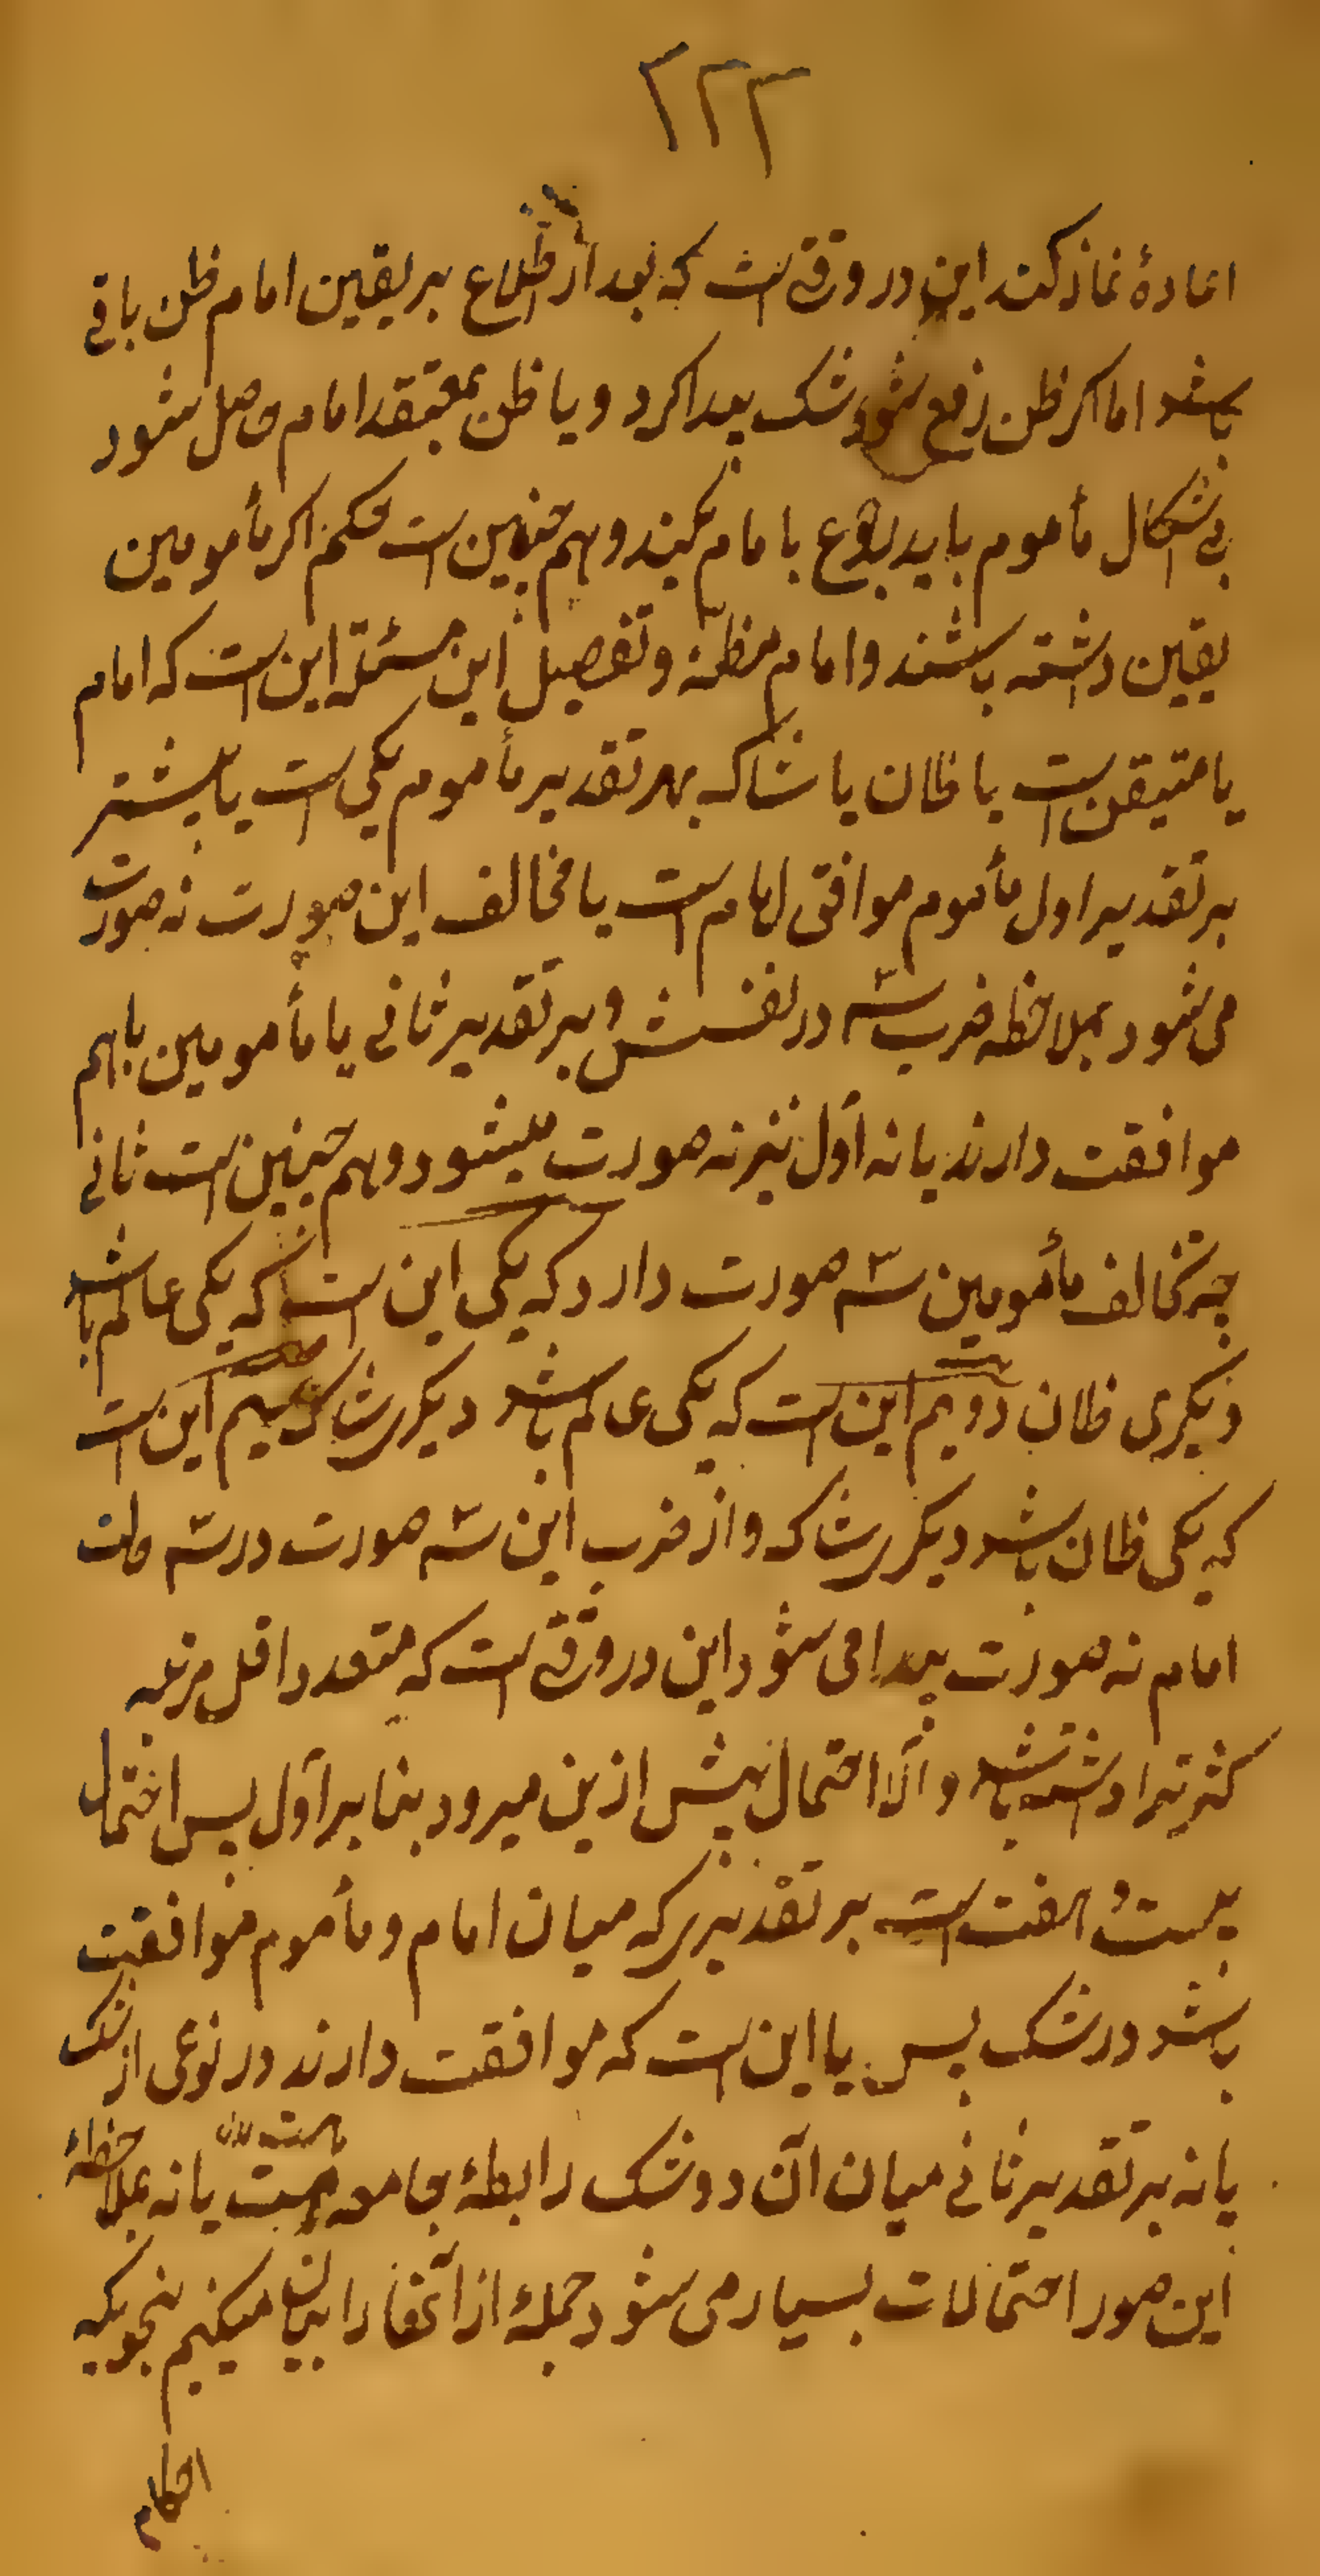 ۲۲۲
اعادهٔ نماز کند این در وقتی است که بعد از اطلاع بر یقین امام ظن باقی
باشد اما اکر ظن رفع شود و شک پیدا کرد و یا ظن بمعتقد امام حاصل شود
بی اشکال مأموم باید رجوع با مام بکند و هم چنین است حکم اکر مأمومین
یقین داشته باشند و امام مظنّه و تفصیل این مسئله این است که امام
یا متیقن است یا ظان یا شاک بهر تقدیر مأموم یکی است یا بیشتر
بر تقدیر اول مأموم موافق امام است یا مخالف این صورت نه صورت
می شود بملاحظه ضرب سّه در نفسش و بر تقدیر ثانی یا مأمومین باهم
موافقت دارند یا نه اوّل نیز نه صورت میشود و هم چنین است ثانی
چه تخالف مأمومین سّه صورت دارد که یکی این است که یکی عالم باشد
دیکری ظان دویم این است که یکی عالم باشد دیکر شاک سیم این است
که یکی ظان باشد دیکر شاک و از ضرب این سّه صورت در سّه حالت
امام نه صورت پیدا می شود این در وقتی است که متعدد اقل مرتبه
کثرت را داشته باشد و الّا احتمال بیش ازین میرود بنا بر اوّل پس احتمال
بیست و هفت است بر تقدیری که میان امام و مأموم موافقت
باشد در شک پس یا این است که موافقت دارند در نوعی از شک
یا نه بر تقدیر ثانی میان آن دو شک رابطهٔ جامعه هست یا نه بملاحظهٔ
این صور احتمالات بسیار می شود جملهٔ از آنها را بیان میکنیم بنحویکه
احکام